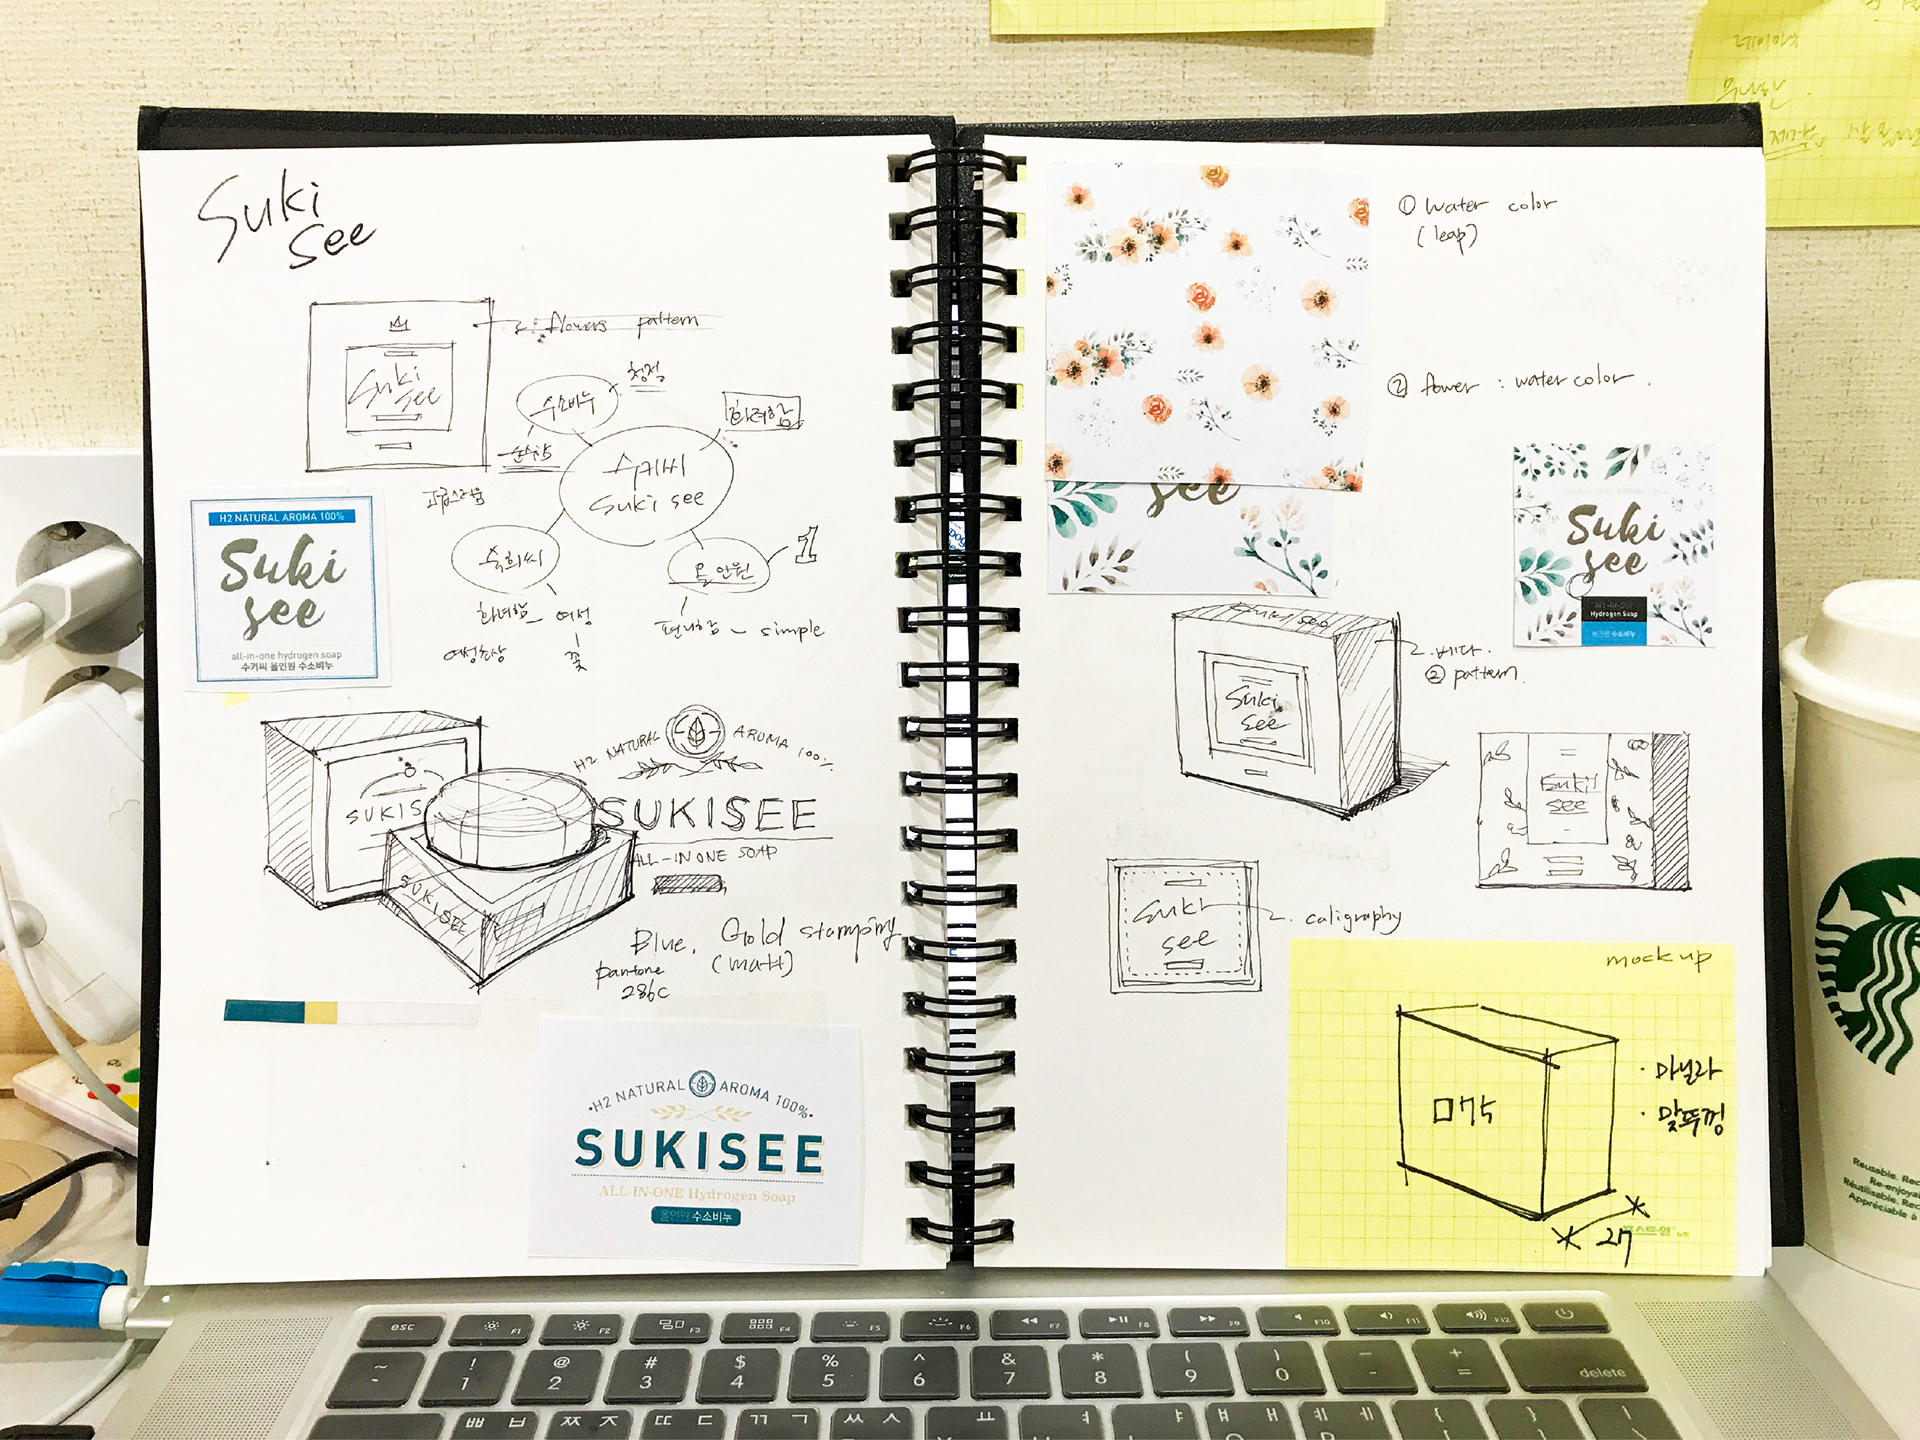 Suki
see
flowers pattern
Suki
see
수소비누
청정
순수함
화려함
수키씨
Suki see
고급스러움
숙희씨
올인원
1
화려함
여성
편리함 - simple
여성
꽃
H2 NATURAL AROMA 100%
Suki
see
all-in-one hydrogen soap
수키씨 올인원 수소비누
H2 NATURAL AROMA 100%
SUKISEE
ALL-IN ONE SOAP
SUKIS
SUKISEE
Blue.
pantone
286c
Gold stamping
(matt)
·H2 NATURAL AROMA 100%·
SUKISEE
ALL-IN-ONE Hydrogen Soap
올인원 수소비누
① water color
(leap)
② fower : water color.
see
H2 NATURAL AROMA 100%
Suki
see
ALL-IN-ONE
Hydrogen Soap
올인원 수소비누
Suki
see
베다.
② pattern.
Suki
see
Suki
see
caligraphy
mock up
□75
· 마닐라
· 맞뚜껑
27
포스트-잇
레이아웃
Reusable.
esc
F1
F2
F3
F4
F5
F6
F7
F8
F9
F10
F11
F12
~ ! @ # $ % ^ & * ( ) - +
1 2 3 4 5 6 7 8 9 0 =
delete
ㅃ ㅂ ㅉ ㅈ ㄸ ㄷ ㄲ ㄱ ㅆ ㅅ ㅛ ㅕ ㅑ ㅒ ㅐ ㅖ ㅔ { }